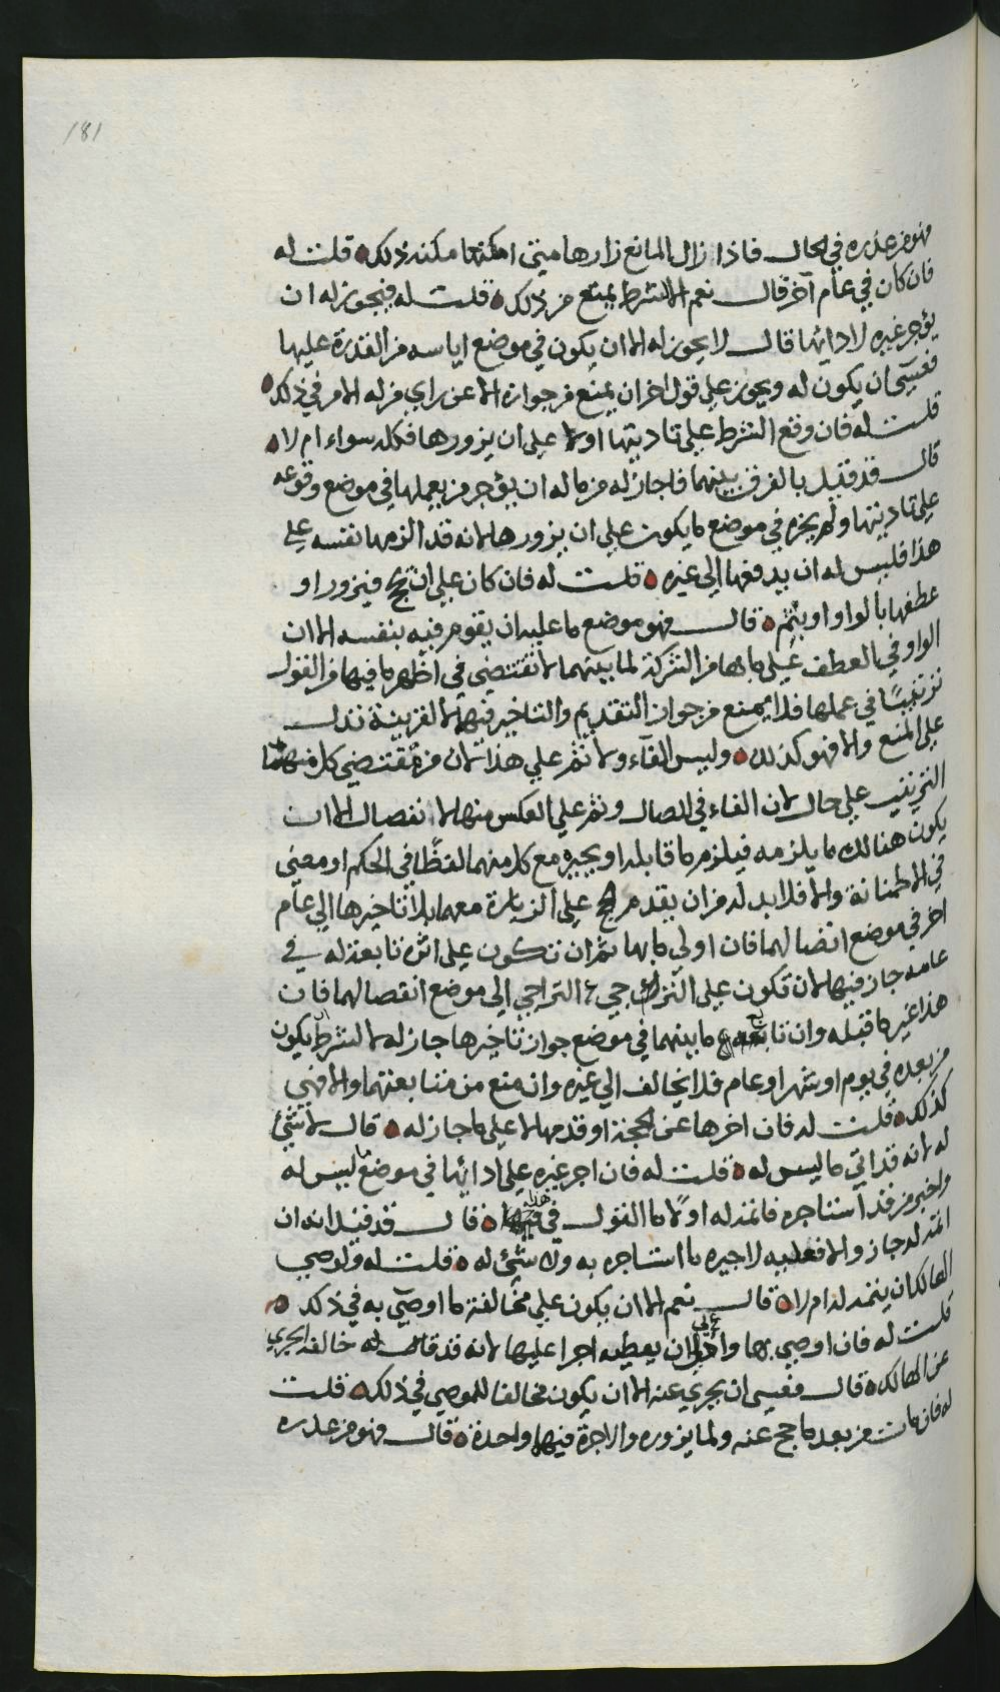 181
فهو من عذره في الحال فاذا زال المانع زارها متى امكنه ذلك قلت له
فان كان في عام آخر قال نعم الا لشرط يمنع من ذلك قلت له فيجوز له ان
يؤجر غيره لادائها قال لا يجوز له الا ان يكون في موضع اياسه من القدرة عليها
فعسى ان يكون له ويجوز على قول اخر ان يمنع من جوازه الا عن راي من له الامر في ذلك
قلت له فان وقع الشرط على تاديتها اولا على ان يزورها فكله سواء ام لا
قال قد قيل بالفرق بينهما فاجاز له من ماله ان يؤجر من يعملها في موضع وقوعه
على تاديتها ولم يجزه في موضع ما يكون على ان يزورها لانه قد الزمها نفسه على
هذا فليس له ان يدفعها الى غيره قلت له فان كان على ان يحج فيزور او
عطفها بالواو او بثم قال فهو موضع ما عليه ان يقوم فيه بنفسه الا ان
الواو في العطف على ما بها من الشركة لما بينهما لا تقتضي في اظهر ما فيها من القول
ترتيبًا في عملها فلا يمنع من جواز التقديم والتاخير فيها الا لقرينة تدل
على المنع والا فهو كذلك وليس الفآء ولا ثم على هذا لان من تقتضي كل منهما
الترتيب على حال لان الفاء في اتصال وثم على العكس منها لانفصال الا ان
يكون هنالك ما يلزمه فيلزم ما قابله او يجيزه مع كل منهما لفظًا في الحكم او معنى
في الاطمئنانة والا فلا بد له من ان يقدم الحج على الزيارة معهما بلا تاخيرها الى عام
اخر في موضع اتصالهما فان اولى ما بها ثم ان تكون على اثر تابعة له في
عامه جاز فيها لان تكون على التراخي الى موضع انفصالهما فان
هذا غير ما قبله وان تابع ما بينهما في موضع جواز تاخيرها جاز له الا لشرط ان يكون
من بعده في يوم او شهر او عام فلا يخالف الى غيره وانه منع من متابعتهما والا فهي
كذلك قلت له فان اخرها عن الحجة او قدمها لا على ما جاز له قال لا شئ
له لانه قد اتى ما ليس له قلت له فان اجر غيره على ادائها في موضع ما ليس له
واخبر من قد استاجره فاتمه له اولا ما القول في هذا قال قد قيل انه ان
اتمه له جاز والا فعليه لاجيره ما استاجره به ولا شئ له قلت له ولوصي
الهالك ان يتمه له ام لا قال نعم الا ان يكون على مخالفة ما اوصى به في ذلك
قلت له فان اوصى بها ان يعطيه اجرا عليها لانه قد قال له خالفه ايجزي
عن الهالك قال فعسى ان يجزي عنه الا ان يكون مخالفا للموصي في ذلك قلت
له فان مات من بعد ما حج عنه ولما يزوره والاجرة فيها واحدة قال فهو من عذره